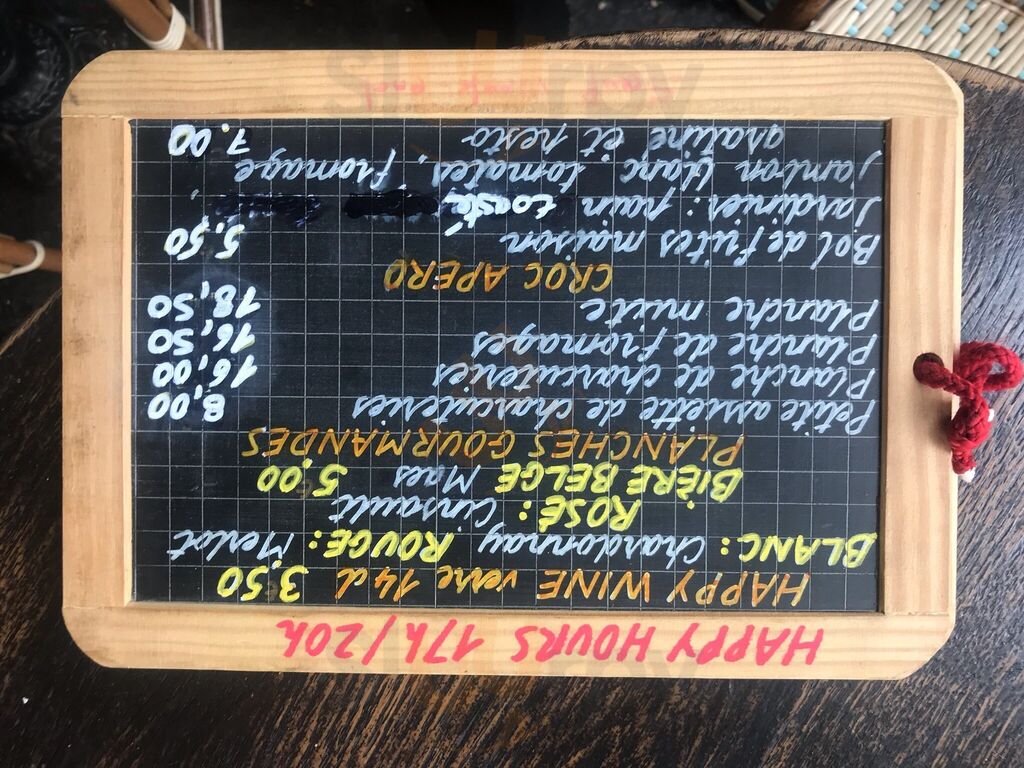 HAPPY HOURS 17h/20h
HAPPY WINE verre 14cl 3,50
BLANC: Chardonnay ROUGE: Merlot
ROSÉ: Cinsault
BIÈRE BELGE Maes 5,00
PLANCHES GOURMANDES
Petite assiette de charcuteries 8,00
Planche de charcuteries 16,00
Planche de fromages 16,50
Planche mixte 18,50
CROC APERO
Bol de frites maison 5,50
Jardinier: pain toasté,
Jambon blanc tomates, fromage
gratiné et pesto 7.00